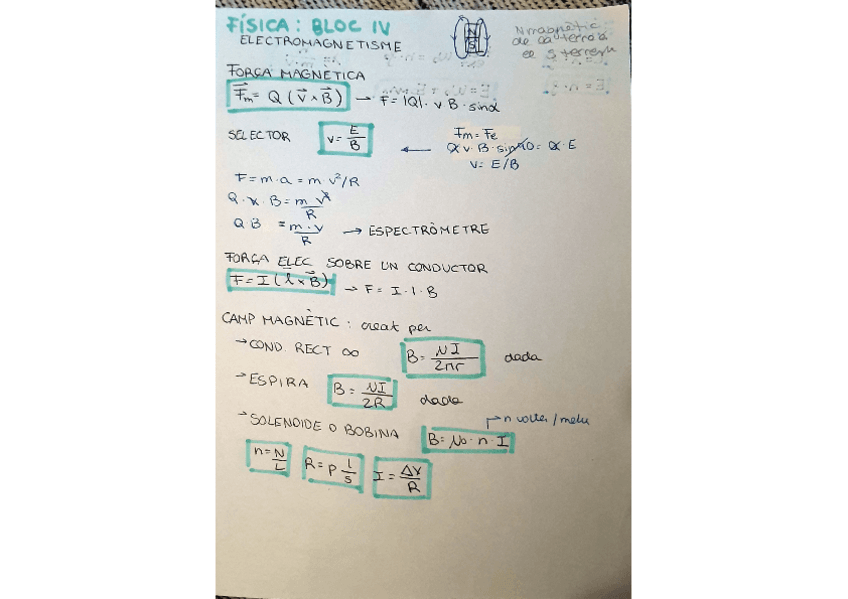 FÍSICA: BLOC IV
ELECTROMAGNETISME
N
S
N magnètic
de la terra és
el S terrestre
FORÇA MAGNÈTICA
F⃗m = Q (v⃗ x B⃗) → F = |Q| · v B · sinα
SELECTOR v = E/B ← Fm = Fe
Q v · B · sin90 = Q · E
v = E/B
F = m · a = m · v²/R
Q · v · B = m v²/R
Q B = m · v/R → ESPECTRÒMETRE
FORÇA ELEC SOBRE UN CONDUCTOR
F = I (l⃗ x B⃗) → F = I · l · B
CAMP MAGNÈTIC : creat per
→ COND. RECT ∞ B = μI/2πr dada
→ ESPIRA B = μI/2R dada
→ SOLENOIDE O BOBINA B = μ₀ · n · I → n voltes / metre
n = N/L R = ρ l/s I = ΔV/R